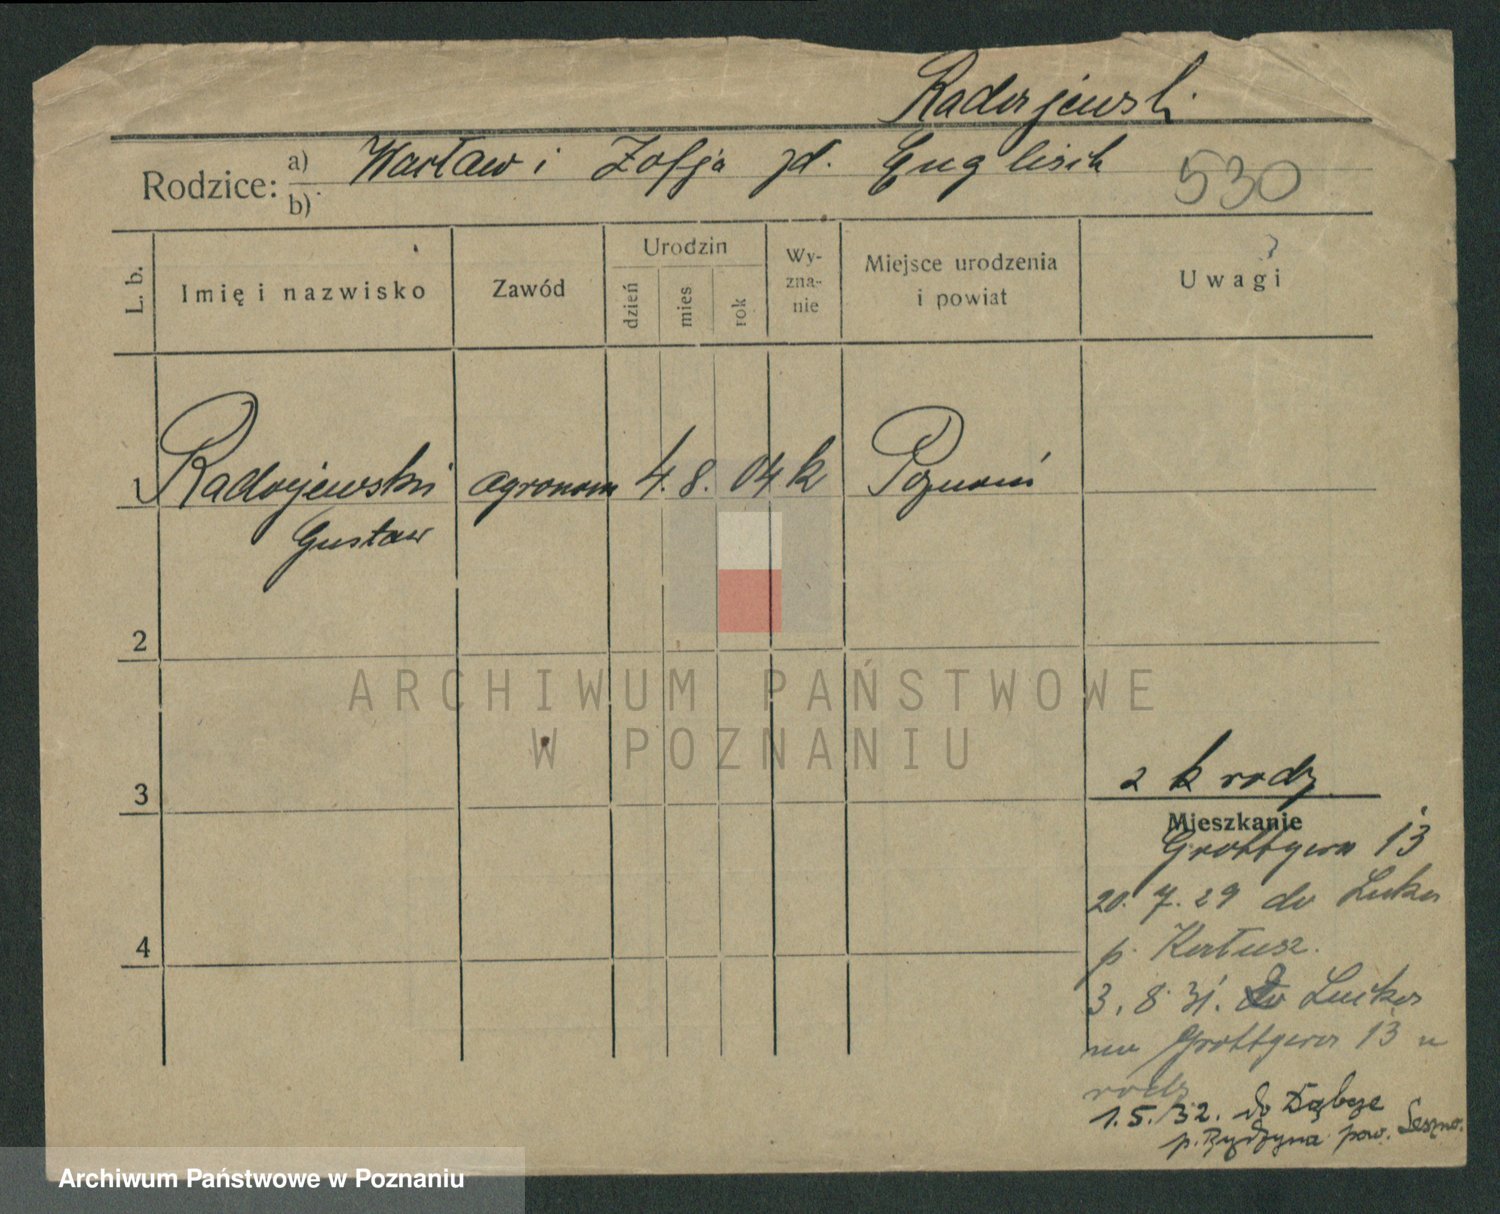 Radojewski
Rodzice: a) Wacław i Zofja zd. Englisch
b)
530
L. b.
Imię i nazwisko
Zawód
Urodzin
dzień
mies
rok
Wy-
zna-
nie
Miejsce urodzenia
i powiat
Uwagi
1 Radojewski agronom 4. 8. 04 k Poznań
Gustaw
2
ARCHIWUM PAŃSTWOWE
W POZNANIU
3
z k rodz.
Mieszkanie
Grottgera 13
4
20. 7. 29 do
p. Kartusz.
3. 8. 31.
na Grottgera 13 u
rodz.
1.5.32. do Dąbcze
p. Rydzyna pow. Leszno.
Archiwum Państwowe w Poznaniu